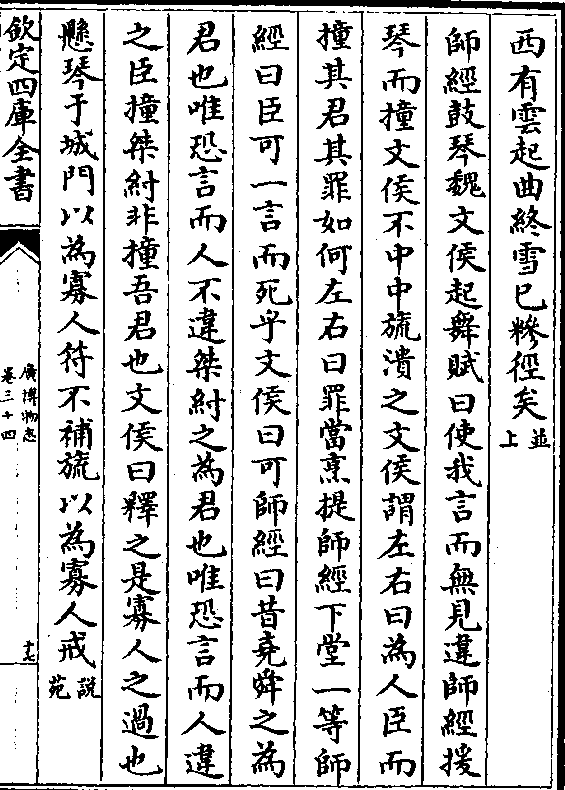 西有雲起曲終雪已糝徑矣並上
師經鼓琴魏文侯起舞賦曰使我言而無見違師經援
琴而撞文侯不中中旒潰之文侯謂左右曰為人臣而
撞其君其罪如何左右曰罪當烹提師經下堂一等師
經曰臣可一言而死乎文侯曰可師經曰昔堯舜之為
君也唯恐言而人不違桀紂之為君也唯恐言而人違
之臣撞桀紂非撞吾君也文侯曰釋之是寡人之過也
懸琴于城門以為寡人符不補旒以為寡人戒說苑
欽定四庫全書
廣博物志
卷三十四
十七